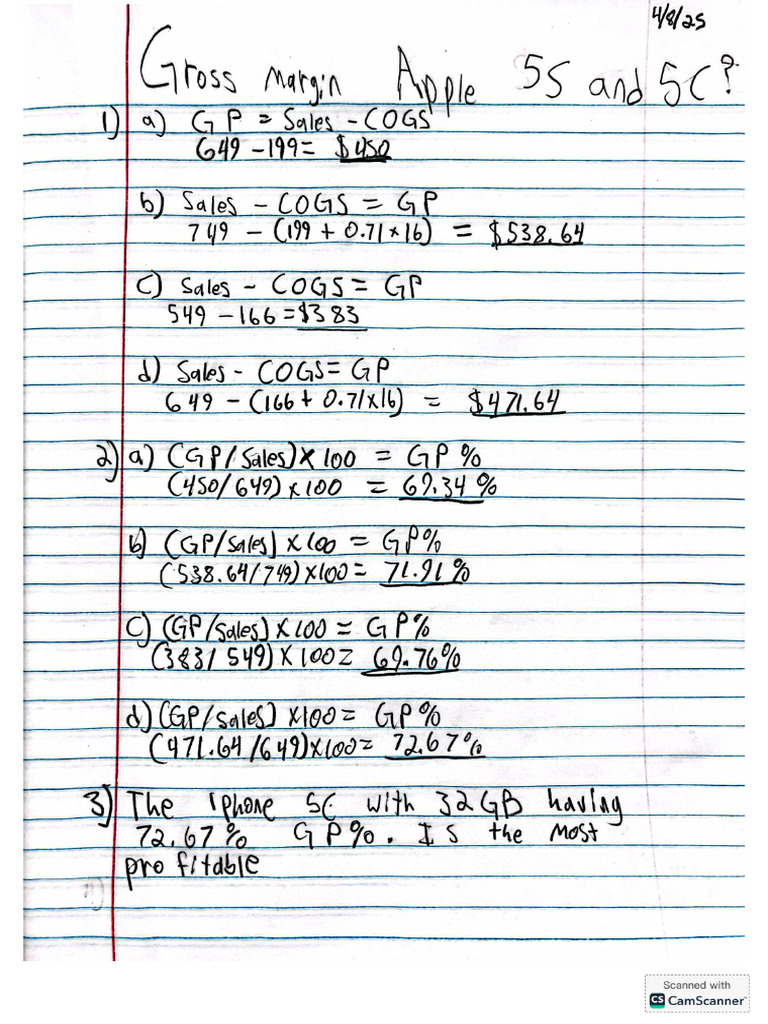 4/8/25
Gross margin Apple 5S and 5C?
1) a) GP = Sales - COGS
649 - 199 = $450
b) Sales - COGS = GP
749 - (199 + 0.71 x 16) = $538.64
c) Sales - COGS = GP
549 - 166 = $383
d) Sales - COGS = GP
649 - (166 + 0.71 x 16) = $471.64
2) a) (GP/Sales) x 100 = GP %
(450/649) x 100 = 69.34 %
b) (GP/Sales) x 100 = GP%
(538.64/749) x 100 = 71.91 %
c) (GP/Sales) x 100 = GP%
(383/549) x 100 = 69.76%
d) (GP/Sales) x 100 = GP%
(471.64/649) x 100 = 72.67%
3) The iphone 5C with 32GB having
72.67% GP%. Is the most
profitable
Scanned with
CS CamScanner